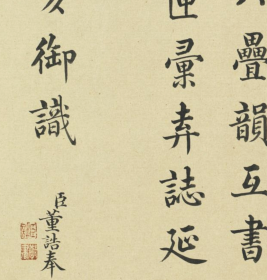 疊韻互書
匣彙弆誌延
御識
臣董誥奉